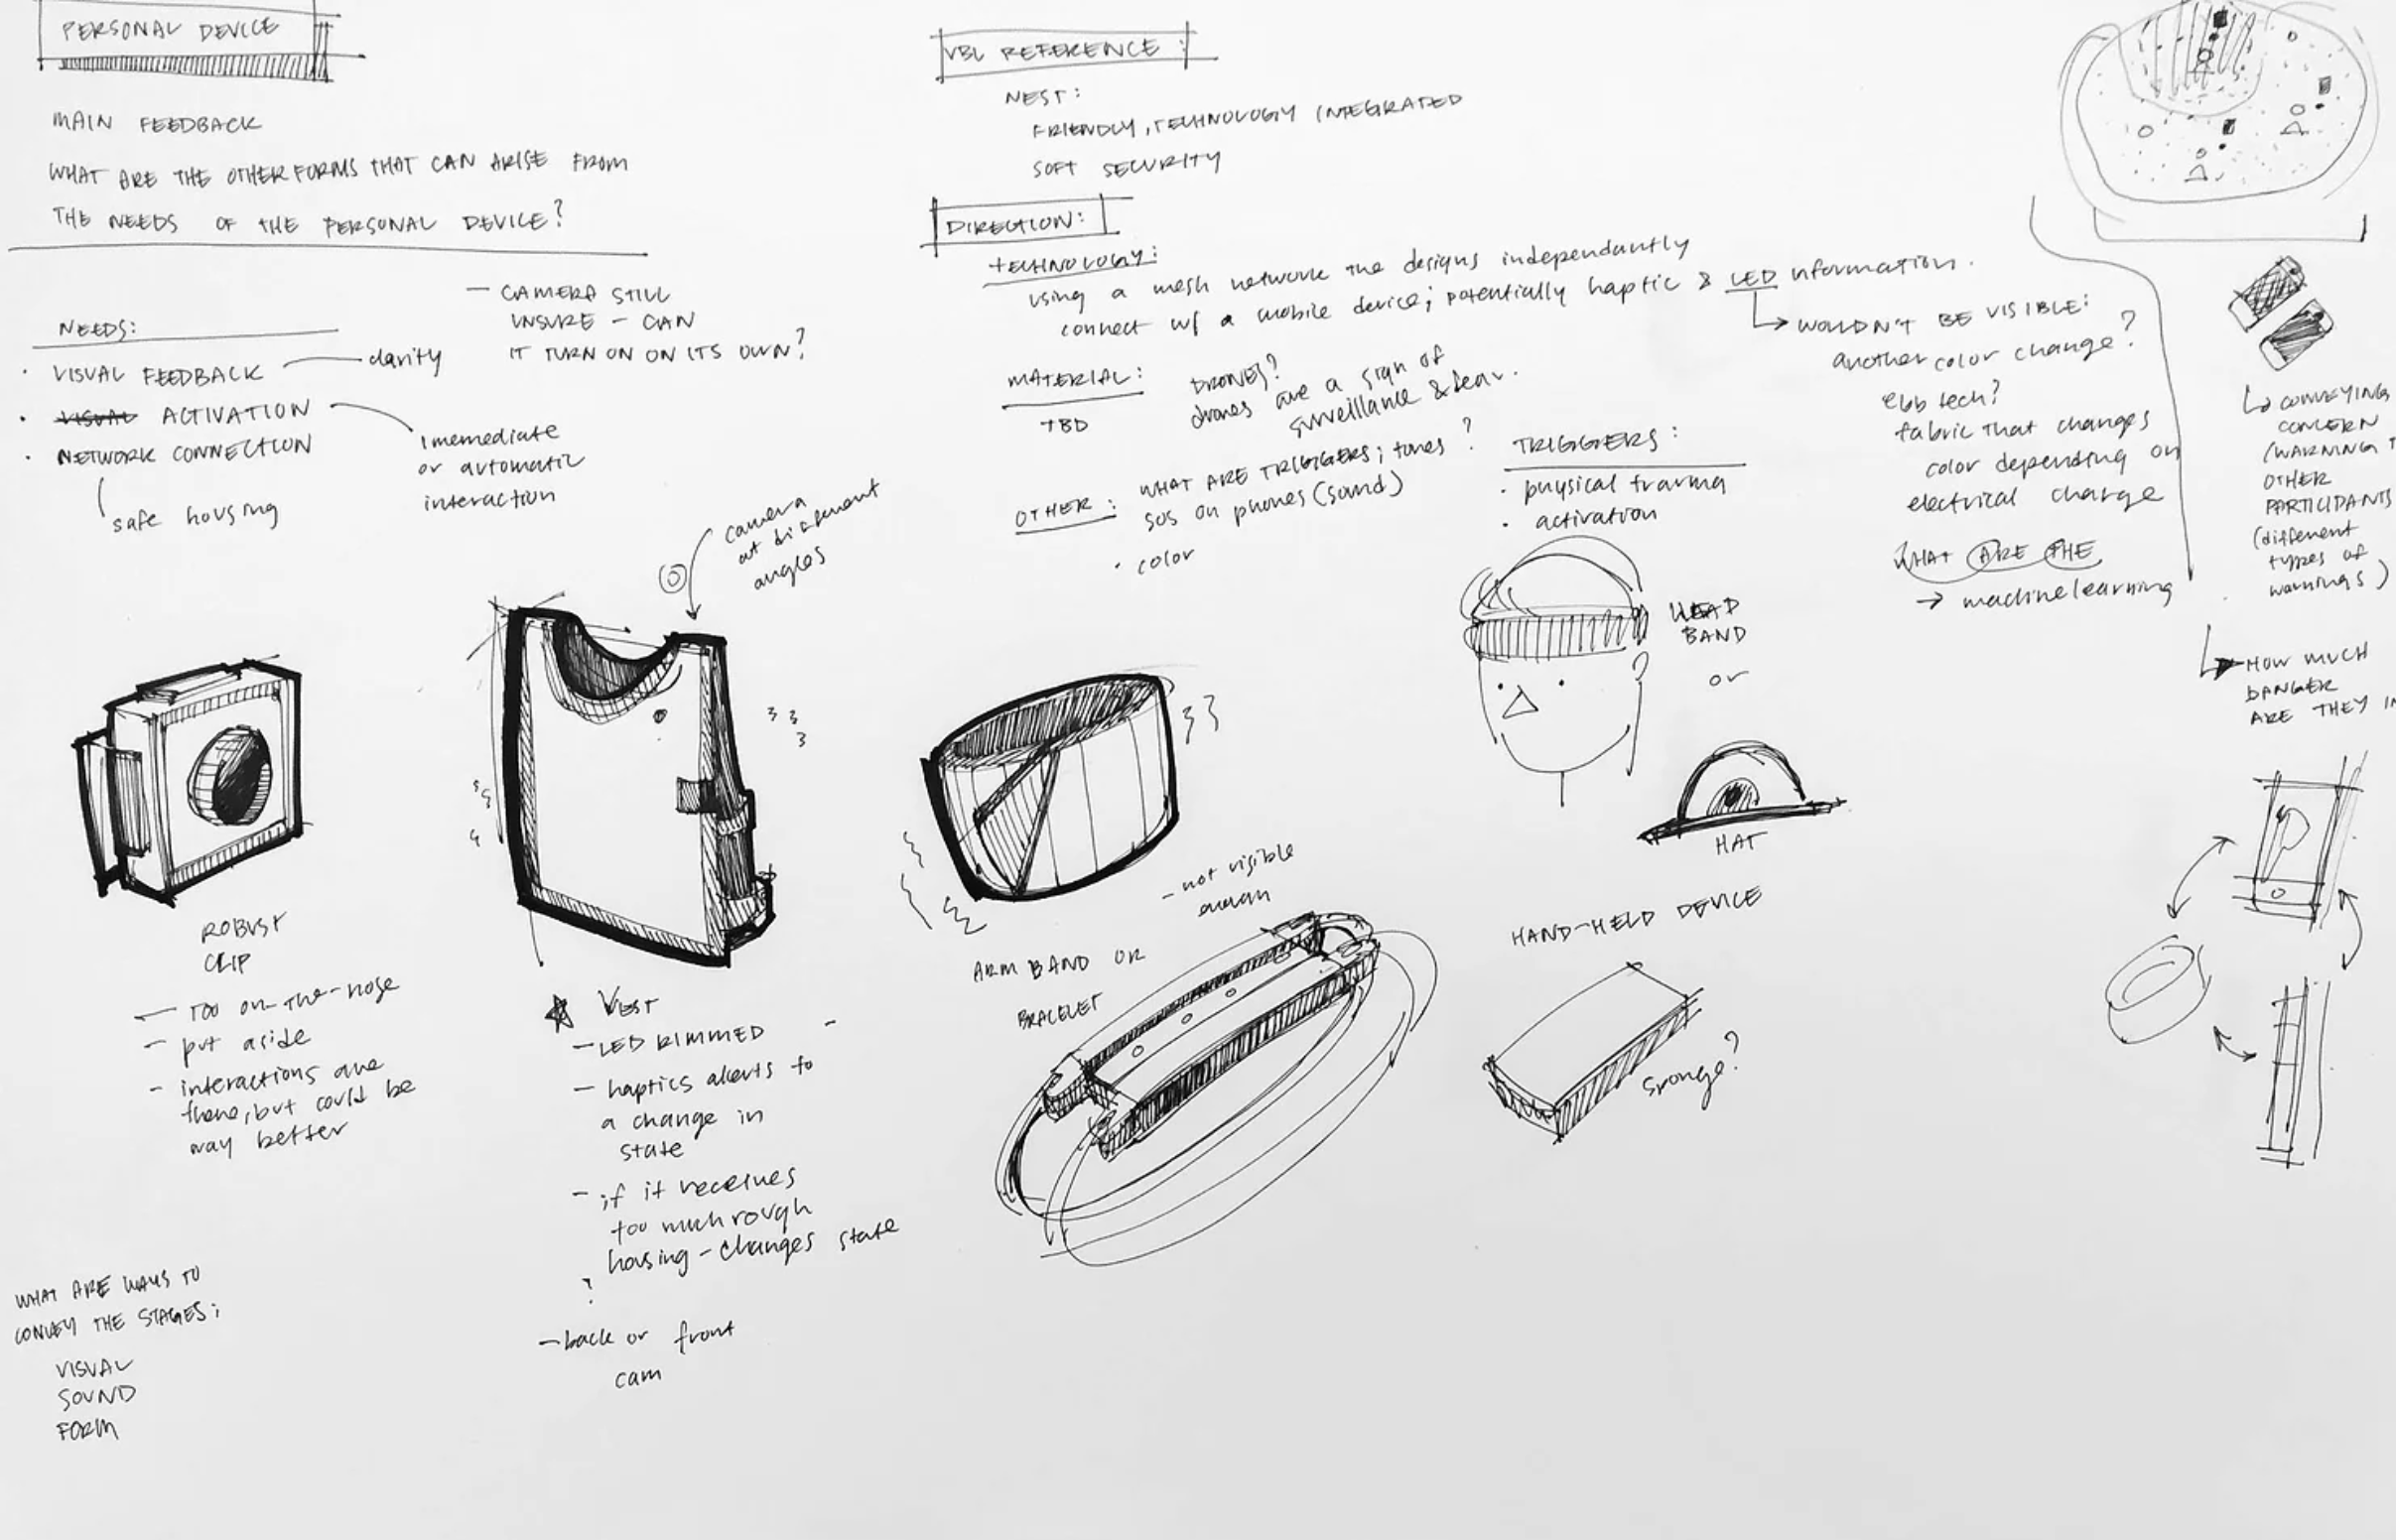 PERSONAL DEVICE
MAIN FEEDBACK
WHAT ARE THE OTHER FORMS THAT CAN ARISE FROM
THE NEEDS OF THE PERSONAL DEVICE?
NEEDS:
· VISUAL FEEDBACK
clarity
· VISUAL ACTIVATION
Imemediate
or automatic
interaction
· NETWORK CONNECTION
safe housing
- CAMERA STILL
UNSURE - CAN
IT TURN ON ON ITS OWN?
camera
at different
angles
ROBUST
CLIP
- TOO on-the-nose
- put aside
- interactions are
there, but could be
way better
WHAT ARE WAYS TO
CONVEY THE STAGES;
VISUAL
SOUND
FORM
VEST
- LED RIMMED
- haptics alerts to
a change in
state
- if it receives
too much rough
housing - changes state
?
- back or front
cam
VBL REFERENCE:
NEST:
FRIENDLY, TECHNOLOGY INTEGRATED
SOFT SECURITY
DIRECTION:
TECHNOLOGY:
using a mesh network the designs independantly
connect w/ a mobile device; potentially haptic & LED information.
WOULDN'T BE VISIBLE:
another color change?
tech?
fabric that changes
color depending on
electrical charge
WHAT ARE THE
→ machine learning
MATERIAL:
TBD
DRONES?
drones are a sign of
surveillance & fear.
OTHER:
WHAT ARE TRIGGERS; tones?
SOS on phones (sound)
· color
TRIGGERS:
· physical trauma
· activation
ARM BAND OR
BRACELET
- not visible
enough
HEAD
BAND
or
HAT
HAND-HELD DEVICE
sponge?
CONVEYING
CONCERN
(WARNING T
OTHER
PARTICIPANTS
(different
types of
warnings)
HOW MUCH
DANGER
ARE THEY IN